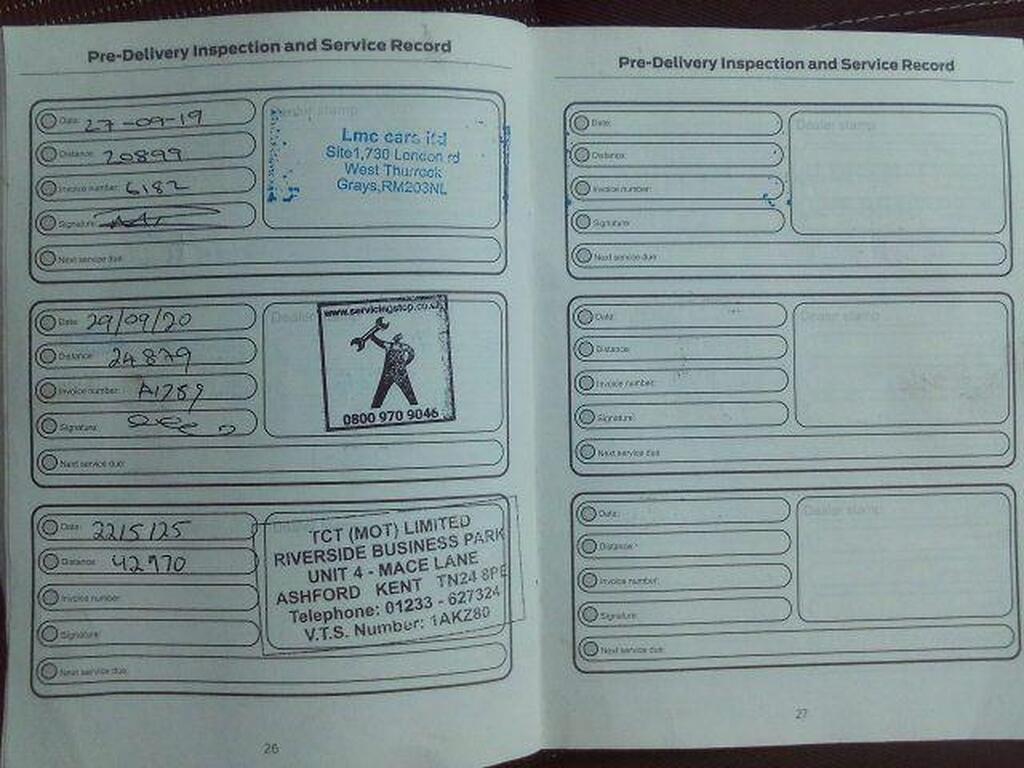 Pre-Delivery Inspection and Service Record
Date: 27-09-19
Distance: 20899
Invoice number: 6182
Signature:
Next service due:
Dealer stamp
Lmc cars ltd
Site1,730 London rd
West Thurrock
Grays,RM203NL
Date: 29/09/20
Distance: 24879
Invoice number: A1789
Signature:
Next service due:
Dealer
www.servicingstop.co.uk
0800 970 9046
Date: 22/5/25
Distance: 42970
Invoice number:
Signature:
Next service due:
TCT (MOT) LIMITED
RIVERSIDE BUSINESS PARK
UNIT 4 - MACE LANE
ASHFORD KENT TN24 8PE
Telephone: 01233 - 627324
V.T.S. Number: 1AKZ80
26
Pre-Delivery Inspection and Service Record
Date:
Distance:
Invoice number:
Signature:
Next service due:
Dealer stamp
Date:
Distance:
Invoice number:
Signature:
Next service due:
Dealer stamp
Date:
Distance:
Invoice number:
Signature:
Next service due:
Dealer stamp
27